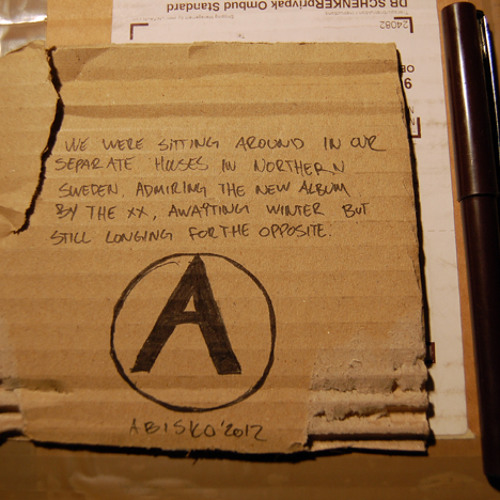 DB SCHENKERprivpak Ombud Standard
24082
WE WERE SITTING AROUND IN OUR
SEPARATE HOUSES IN NORTHERN
SWEDEN, ADMIRING THE NEW ALBUM
BY THE XX, AWAITING WINTER BUT
STILL LONGING FOR THE OPPOSITE.
A
ABISKO '2012